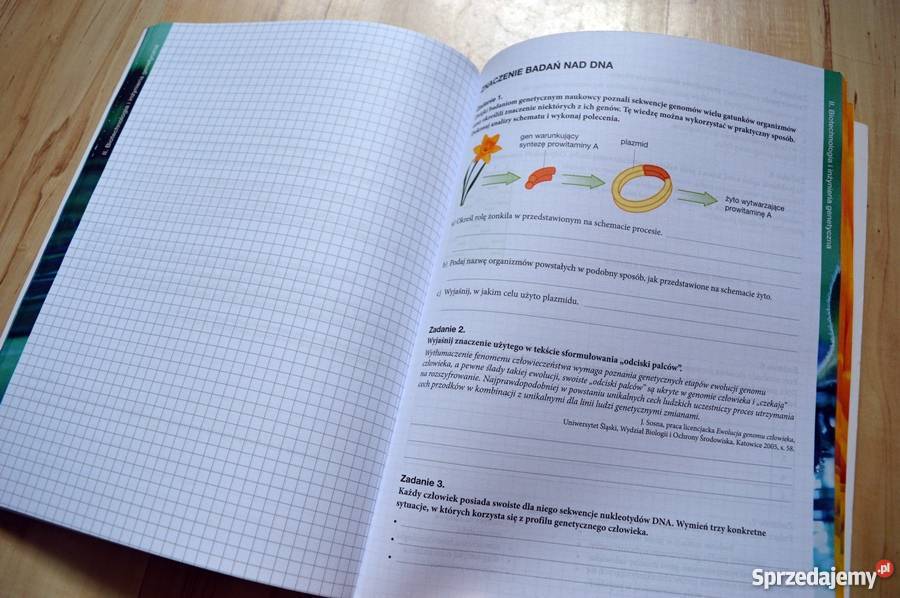 II. Biotechnologia i inżynieria genetyczna
ZNACZENIE BADAŃ NAD DNA
Zadanie 1.
badaniom genetycznym naukowcy poznali sekwencje genomów wielu gatunków organizmów
określili znaczenie niektórych z ich genów. Tę wiedzę można wykorzystać w praktyczny sposób.
analizy schematu i wykonaj polecenia.
gen warunkujący
syntezę prowitaminy A
plazmid
żyto wytwarzające
prowitaminę A
a) Określ rolę żonkila w przedstawionym na schemacie procesie.
b) Podaj nazwę organizmów powstałych w podobny sposób, jak przedstawione na schemacie żyto.
c) Wyjaśnij, w jakim celu użyto plazmidu.
Zadanie 2.
Wyjaśnij znaczenie użytego w tekście sformułowania „odciski palców”.
Wytłumaczenie fenomenu człowieczeństwa wymaga poznania genetycznych etapów ewolucji genomu
człowieka, a pewne ślady takiej ewolucji, swoiste „odciski palców” są ukryte w genomie człowieka i „czekają”
na rozszyfrowanie. Najprawdopodobniej w powstaniu unikalnych cech ludzkich uczestniczy proces utrzymania
cech przodków w kombinacji z unikalnymi dla linii ludzi genetycznymi zmianami.
J. Sosna, praca licencjacka Ewolucja genomu człowieka,
Uniwersytet Śląski, Wydział Biologii i Ochrony Środowiska. Katowice 2005, s. 58.
Zadanie 3.
Każdy człowiek posiada swoiste dla niego sekwencje nukleotydów DNA. Wymień trzy konkretne
sytuacje, w których korzysta się z profilu genetycznego człowieka.
•
•
•
II. Biotechnologia i inżynieria genetyczna
Sprzedajemy.pl